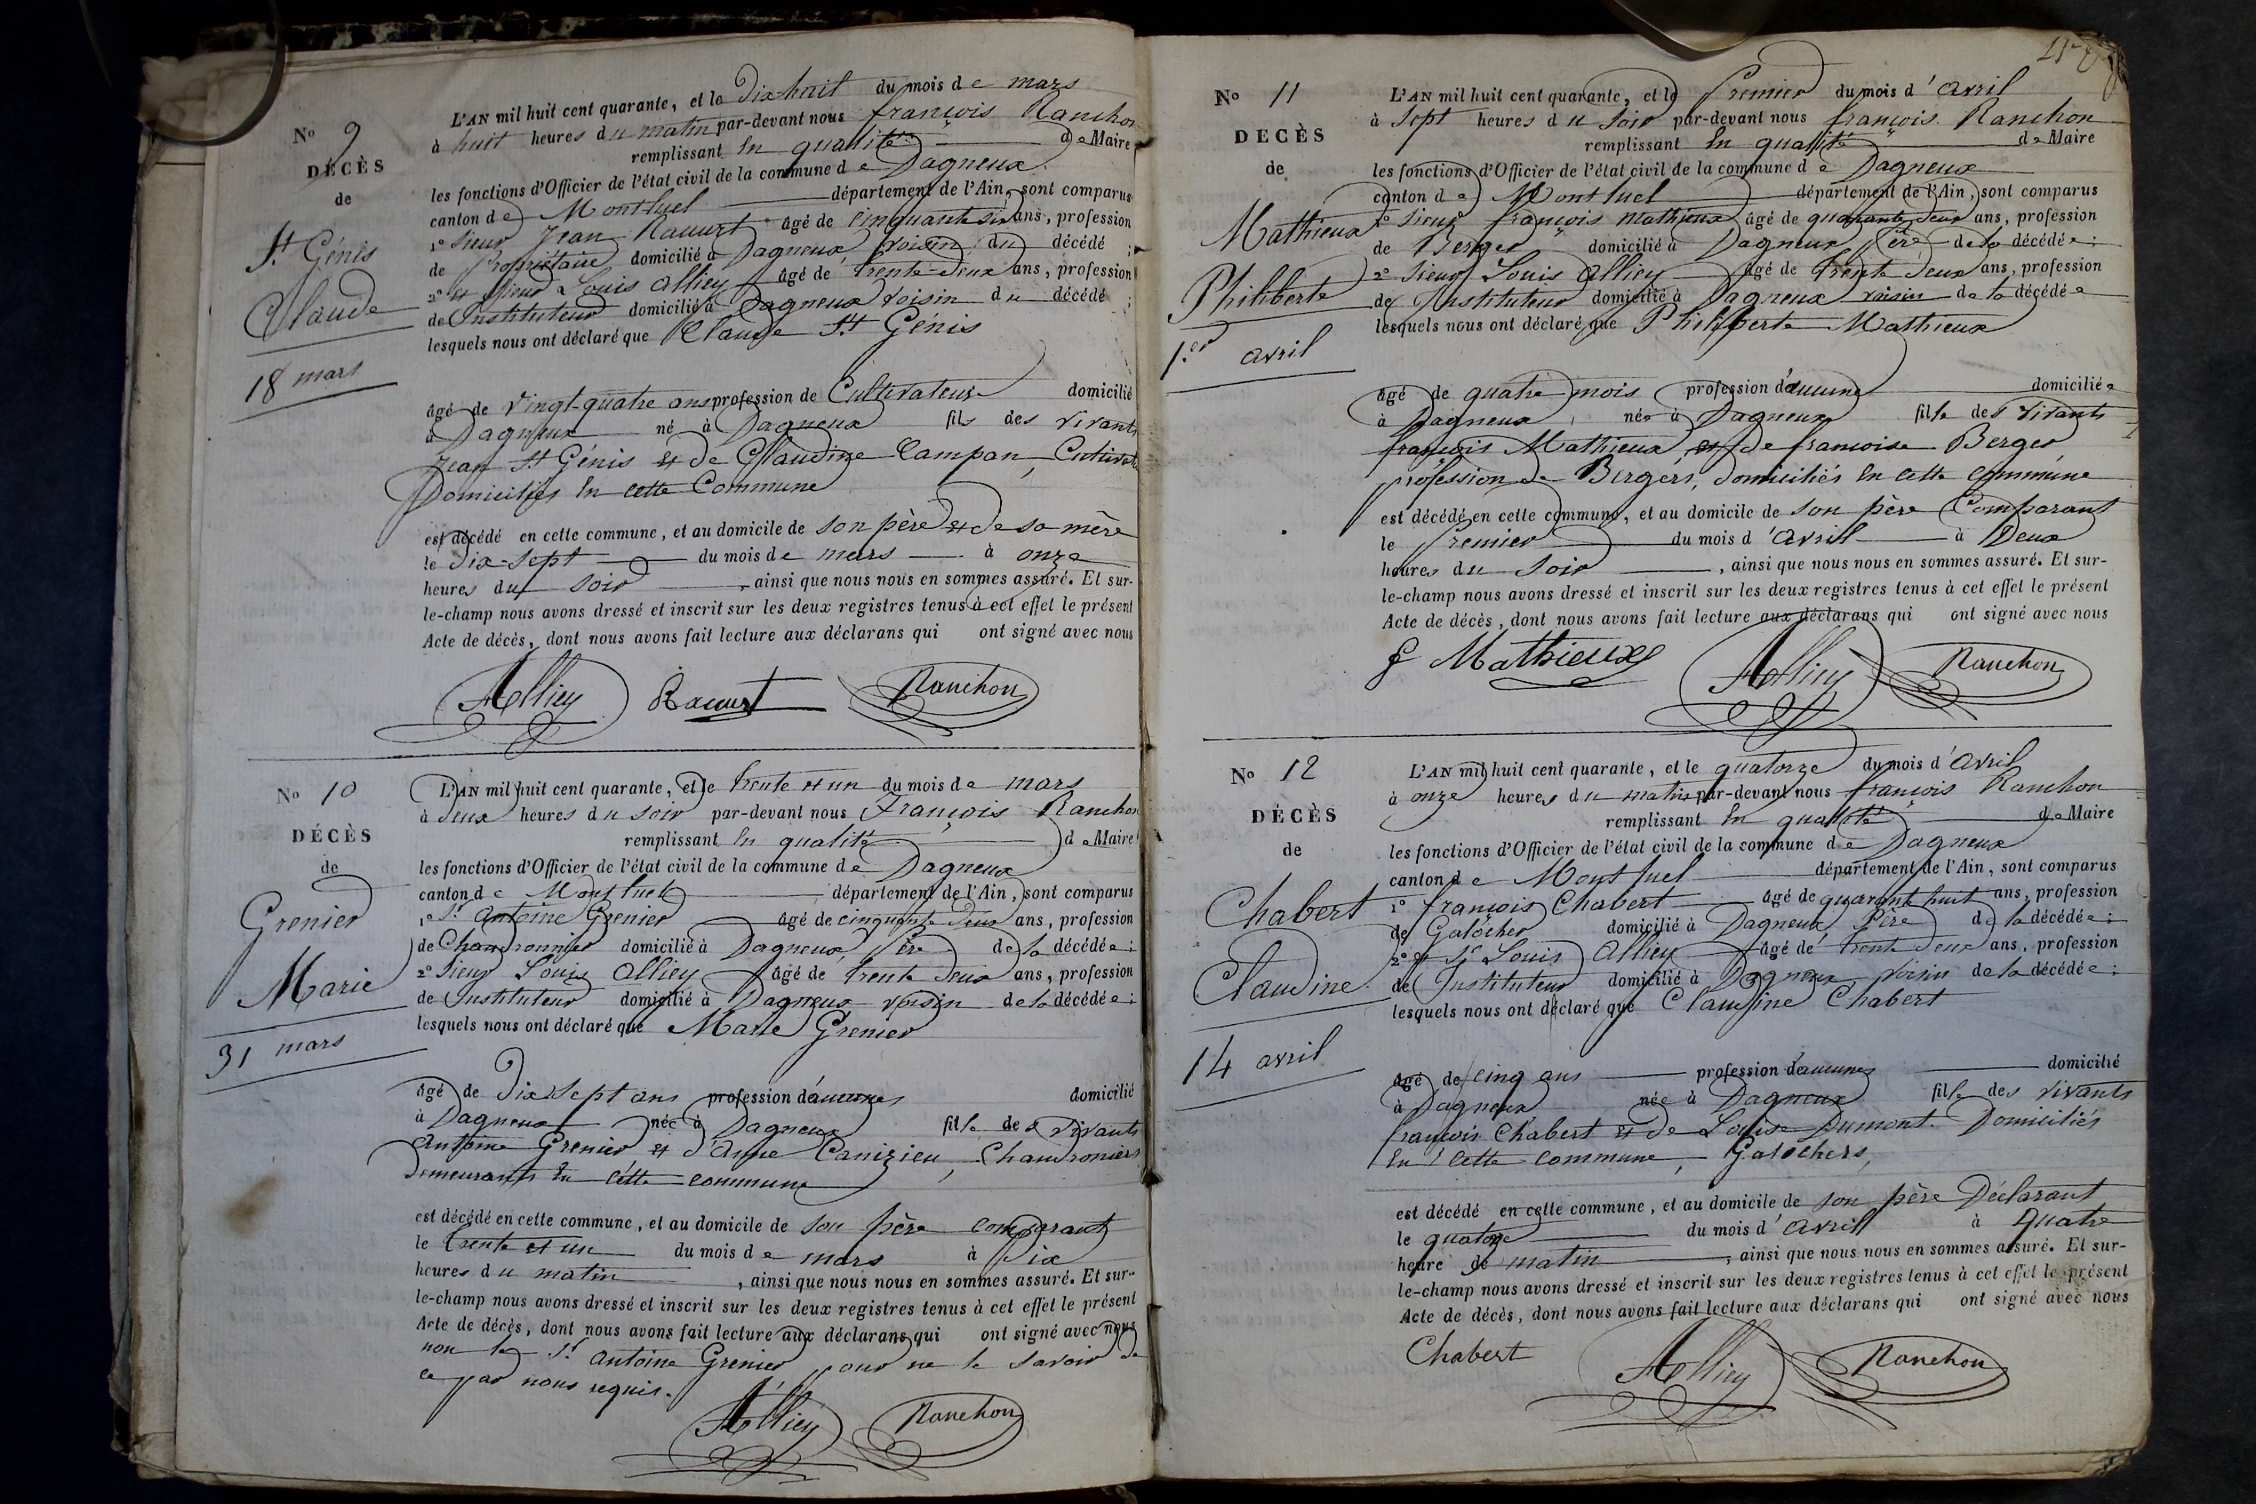 No 9
DÉCÈS
de
St Génis
Claude
18 mars
L'AN mil huit cent quarante, et le dix huit du mois de mars
à huit heures du matin par-devant nous françois Ranchon
remplissant en qualité de Maire
les fonctions d'Officier de l'état civil de la commune de Dagneux
canton de Montluel département de l'Ain, sont comparus
1° sieur Jean Racurt âgé de cinquante six ans, profession
de Propriétaire domicilié à Dagneux voisin du décédé ;
2° et sieur Louis Alliey âgé de trente-deux ans, profession
de Instituteur domicilié à Dagneux voisin du décédé ;
lesquels nous ont déclaré que Claude St Génis
âgé de vingt-quatre ans profession de Cultivateur domicilié
à Dagneux né à Dagneux fils des vivants
Jean St Génis et de Claudine Campan, Cultivat
Domiciliés en cette Commune
est décédé en cette commune, et au domicile de son père et de sa mère
le dix-sept du mois de mars à onze
heures du soir, ainsi que nous nous en sommes assuré. Et sur-
le-champ nous avons dressé et inscrit sur les deux registres tenus à cet effet le présent
Acte de décès, dont nous avons fait lecture aux déclarans qui ont signé avec nous
Alliey Racurt Ranchon
No 10
DÉCÈS
de
Grenier
Marie
31 mars
L'AN mil huit cent quarante, et le trente et un du mois de mars
à deux heures du soir par-devant nous François Ranchon
remplissant en qualité de Maire
les fonctions d'Officier de l'état civil de la commune de Dagneux
canton de Montluel département de l'Ain, sont comparus
1° Sr Antoine Grenier âgé de cinquante deux ans, profession
de Chaudronnier domicilié à Dagneux, Père de la décédée ;
2° Sieur Louis Alliey âgé de trente deux ans, profession
de Instituteur domicilié à Dagneux voisin de la décédée ;
lesquels nous ont déclaré que Marie Grenier
âgé de Dix Sept ans profession d'aucunes domicilié
à Dagneux née à Dagneux fille des vivants
Antoine Grenier et d'Anne Canizieu, Chaudroniers
demeurants en cette commune
est décédé en cette commune, et au domicile de son père comparant
le trente et un du mois de mars à Dix
heures du matin, ainsi que nous nous en sommes assuré. Et sur-
le-champ nous avons dressé et inscrit sur les deux registres tenus à cet effet le présent
Acte de décès, dont nous avons fait lecture aux déclarans qui ont signé avec nous
non le Sr Antoine Grenier pour ne le savoir de
ce par nous requis.
Alliey Ranchon
No 11
DECÈS
de
Mathieux
Philiberte
1.er avril
L'AN mil huit cent quarante, et le Premier du mois d'avril
à Sept heures du soir par-devant nous françois Ranchon
remplissant En qualité de Maire
les fonctions d'Officier de l'état civil de la commune de Dagneux
canton de Montluel département de l'Ain, sont comparus
1° Sieur françois Mathieux âgé de quarante deux ans, profession
de Berger domicilié à Dagneux Père de la décédée ;
2° Sieur Louis Alliey âgé de trente deux ans, profession
de Instituteur domicilié à Dagneux voisin de la décédée
lesquels nous ont déclaré que Philiberte Mathieux
âgé de quatre mois profession d'aucune domiciliée
à Dagneux, née à Dagneux fille des vivants
françois Mathieux et de francoise Berger
profession de Bergers, domiciliés en cette commune
est décédé en cette commune, et au domicile de son père Comparant
le Premier du mois d'avril à Deux
heures du soir, ainsi que nous nous en sommes assuré. Et sur-
le-champ nous avons dressé et inscrit sur les deux registres tenus à cet effet le présent
Acte de décès, dont nous avons fait lecture aux déclarans qui ont signé avec nous
f Mathieux Alliey Ranchon
No 12
DÉCÈS
de
Chabert
Claudine
14 avril
L'AN mil huit cent quarante, et le quatorze du mois d'avril
à onze heures du matin par-devant nous françois Ranchon
remplissant En qualité de Maire
les fonctions d'Officier de l'état civil de la commune de Dagneux
canton de Montluel département de l'Ain, sont comparus
1° françois Chabert âgé de quarant huit ans, profession
de Galocher domicilié à Dagneux Père de la décédée ;
2° et Sr Louis Alliey âgé de trente deux ans, profession
de Instituteur domicilié à Dagneux voisin de la décédée ;
lesquels nous ont déclaré que Claudine Chabert
âgé de cinq ans profession d'aucunes domicilié
à Dagneux née à Dagneux fille des vivants
françois Chabert et de Louise Dumont. Domiciliés
En cette commune, Galochers,
est décédé en cette commune, et au domicile de son père Déclarant
le quatorze du mois d'avril à Quatre
heure de matin, ainsi que nous nous en sommes assuré. Et sur-
le-champ nous avons dressé et inscrit sur les deux registres tenus à cet effet le présent
Acte de décès, dont nous avons fait lecture aux déclarans qui ont signé avec nous
Chabert Alliey Ranchon